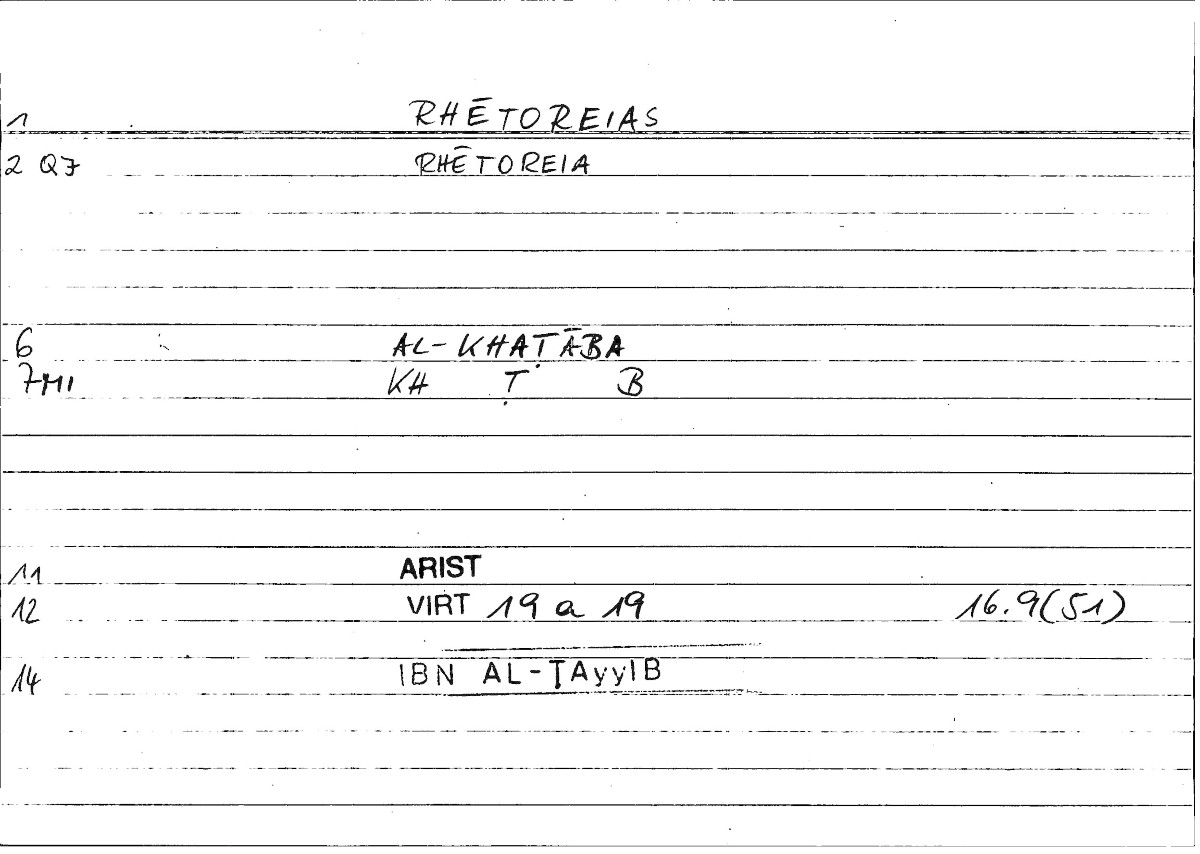 1 RHĒTOREIAS
2 Q7 RHĒTOREIA
6 AL-KHAṬĀBA
7MI KH Ṭ B
11 ARIST
12 VIRT 19 a 19 16.9(51)
14 IBN AL-ṬAyyIB